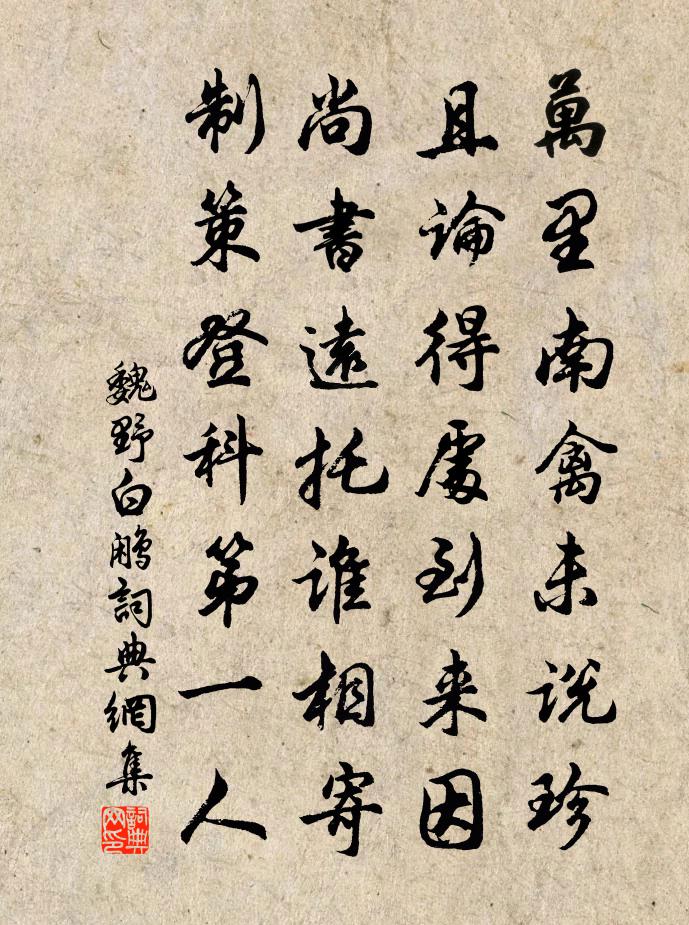 萬里南禽未説珍
且論得處到來因
尚書遠托誰相寄
制策登科第一人
魏野白鷴詞典網集
詞典網印